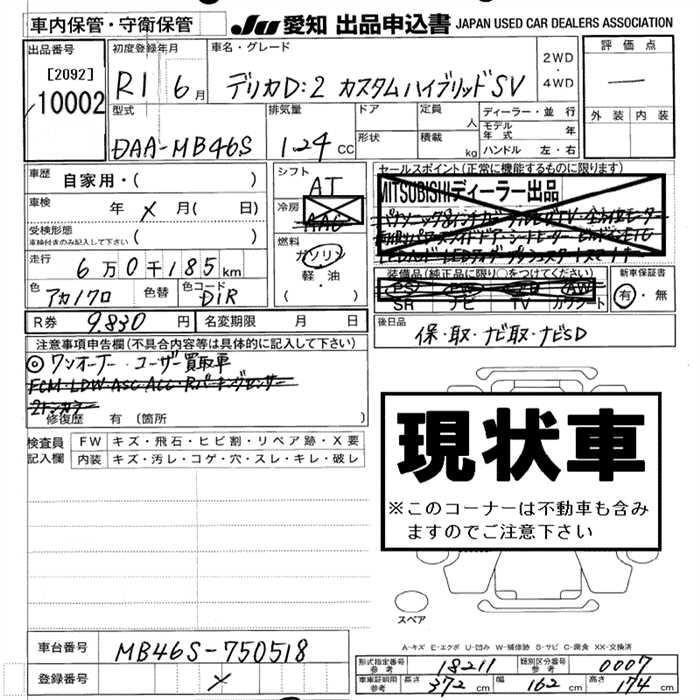 車内保管・守衛保管 JU 愛知 出品申込書 JAPAN USED CAR DEALERS ASSOCIATION
出品番号 初度登録年月 車名・グレード 評価点
[2092] 10002 R1 6月 デリカD:2 カスタムハイブリッドSV 2WD・4WD —
外装 内装
型式 排気量 ドア 定員 ディーラー・並行
DAA-MB46S 1.24 CC 人 モデル年式 年
形状 積載 kg ハンドル 左・右
車歴 自家用・( ) シフト AT セールスポイント(正常に機能するものに限ります)
MITSUBISHIディーラー出品
車検 年 メ 月( 日) 冷房 AAC
受検形態 車検付きのみ記入して下さい ( )
燃料 ガソリン 軽・油 ( )
走行 6万0千185km
装備品(純正品に限り○)をつけてください 新車保証書
PS PW アB AW 有・無
SR ナビ TV カワシート
色 アカ/クロ 色替 色コード D1R
R券 9.830円 名変期限 月 日 後日品
保・取・ナビ取・ナビSD
注意事項申告欄(不具合内容等は具体的に記入して下さい)
◎ワンオーナー・ユーザー買取車
FCM・LDW・ASC・ACC・Rパーキングセンサー
2トンカラー
修復歴 有〔箇所
検査員記入欄 FW キズ・飛石・ヒビ割・リペア跡・X要
内装 キズ・汚レ・コゲ・穴・スレ・キレ・破レ
現状車
※このコーナーは不動車も含み
ますのでご注意下さい
スペア
A-キズ E-エクボ U-凹み W-補修跡 S-サビ C-腐食 XX-交換済
車台番号 MB46S-750518
形式指定番号 参考 18211 類別区分番号 参考 0007
登録番号 メ
車庫証明用 参考 長さ 372cm 幅 162cm 高さ 174cm